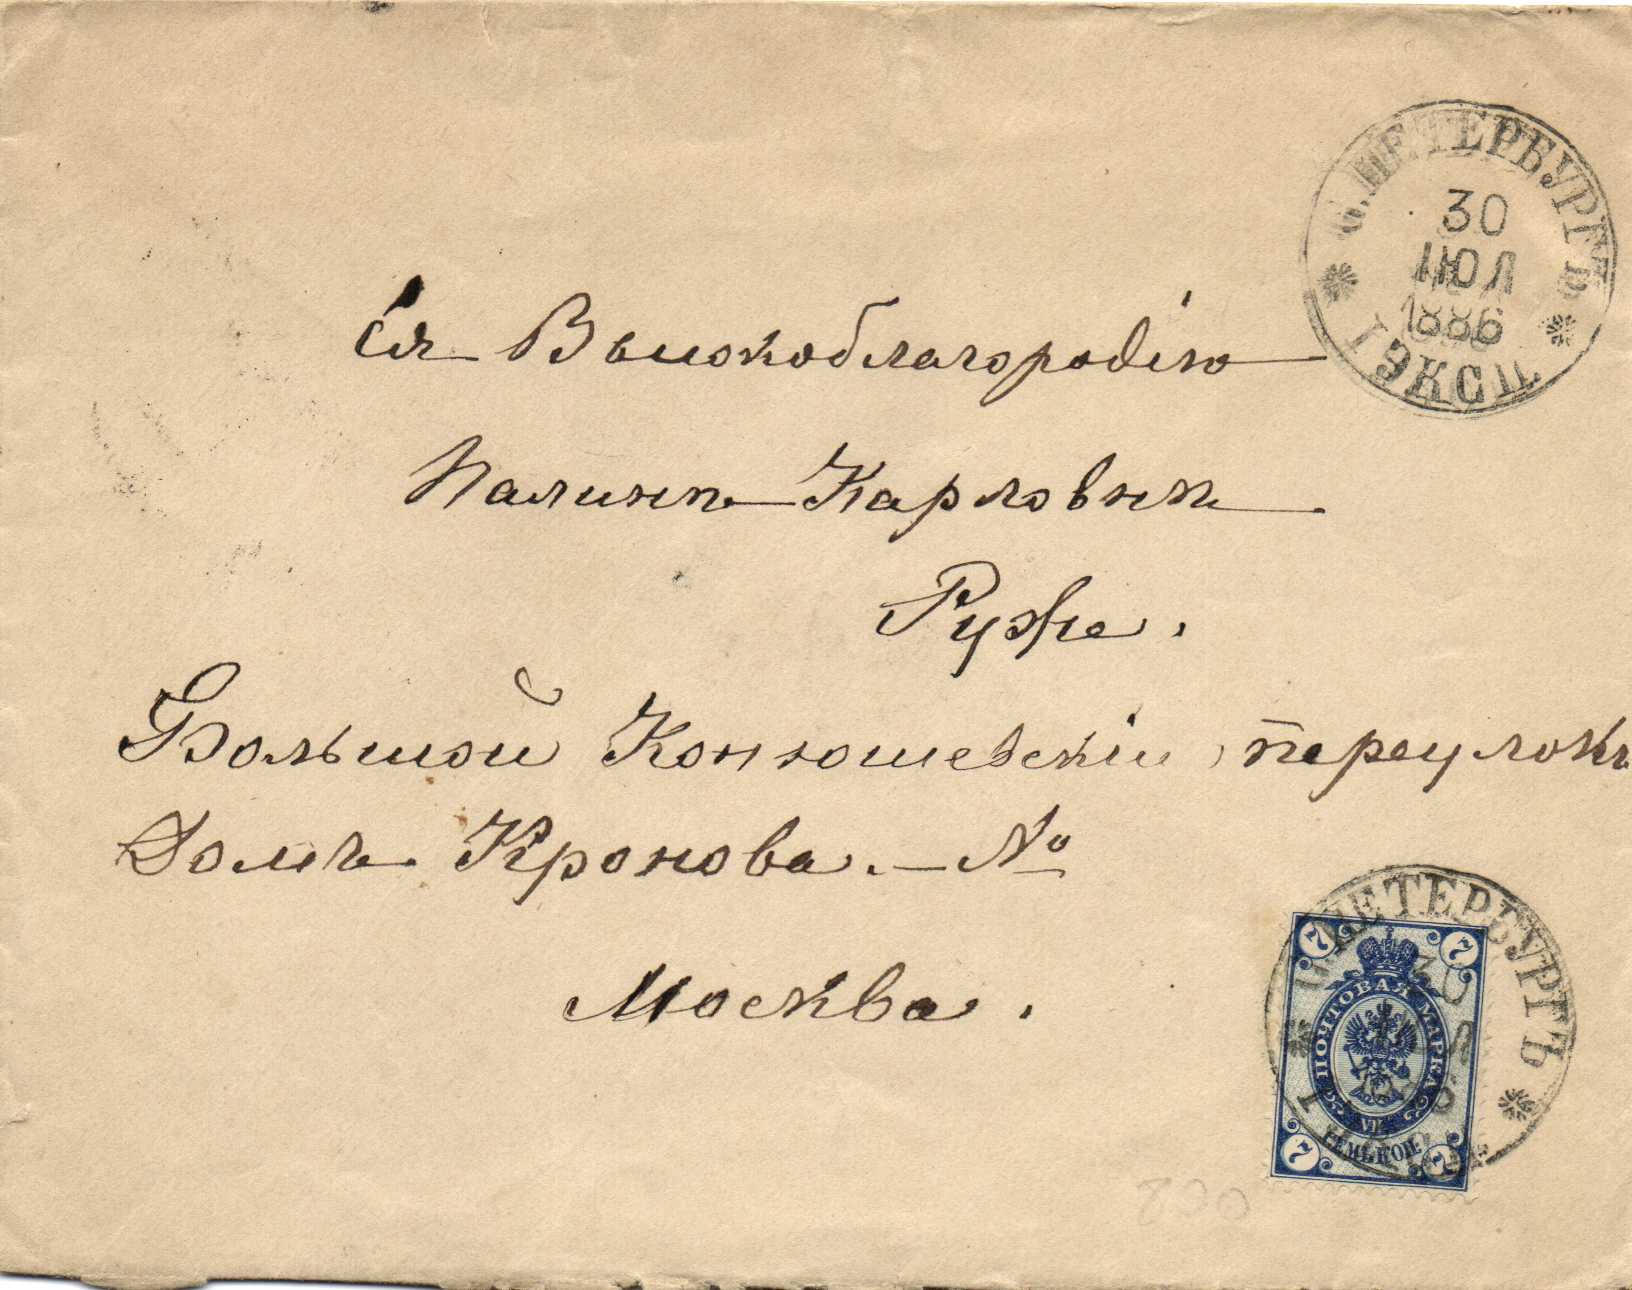 С.ПЕТЕРБУРГЪ
30
ІЮЛ
1886
I ЭКСП.
Ея Высокоблагородію
Палинѣ Карловнѣ
Руже.
Большой Конюшевскій переулокъ
Домъ Кронова. — №
Москва.
С.ПЕТЕРБУРГЪ
30
7 7
ПОЧТОВАЯ МАРКА
СЕМЬ КОП.
7 7
200